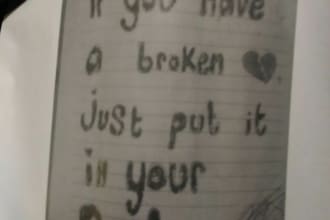 If you have
a broken 💔.
just put it
in your